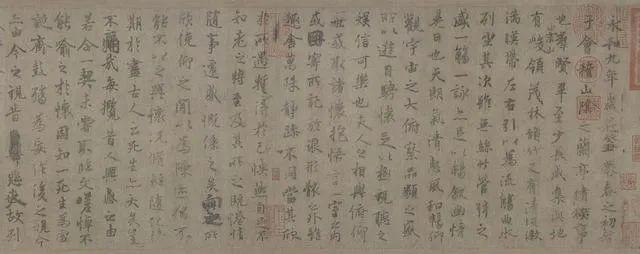 永和九年歲在癸丑暮春之初會
于會稽山陰之蘭亭脩稧事
也羣賢畢至少長咸集此地
有崇山峻領茂林脩竹又有清流激
湍暎帶左右引以為流觴曲水
列坐其次雖無絲竹管弦之
盛一觴一詠亦足以暢敘幽情
是日也天朗氣清惠風和暢仰
觀宇宙之大俯察品類之盛
所以遊目騁懷足以極視聽之
娛信可樂也夫人之相與俯仰
一世或取諸懷抱悟言一室之內
或因寄所託放浪形骸之外雖
趣舍萬殊靜躁不同當其欣
於所遇蹔得於己怏然自足不
知老之將至及其所之既惓情
隨事遷感慨係之矣向之所
欣俛仰之閒以為陳迹猶不
能不以之興懷況脩短隨化終
期於盡古人云死生亦大矣豈
不痛哉每攬昔人興感之由
若合一契未嘗不臨文嗟悼不
能喻之於懷固知一死生為虛
誕齊彭殤為妄作後之視今
亦由今之視昔悲夫故列